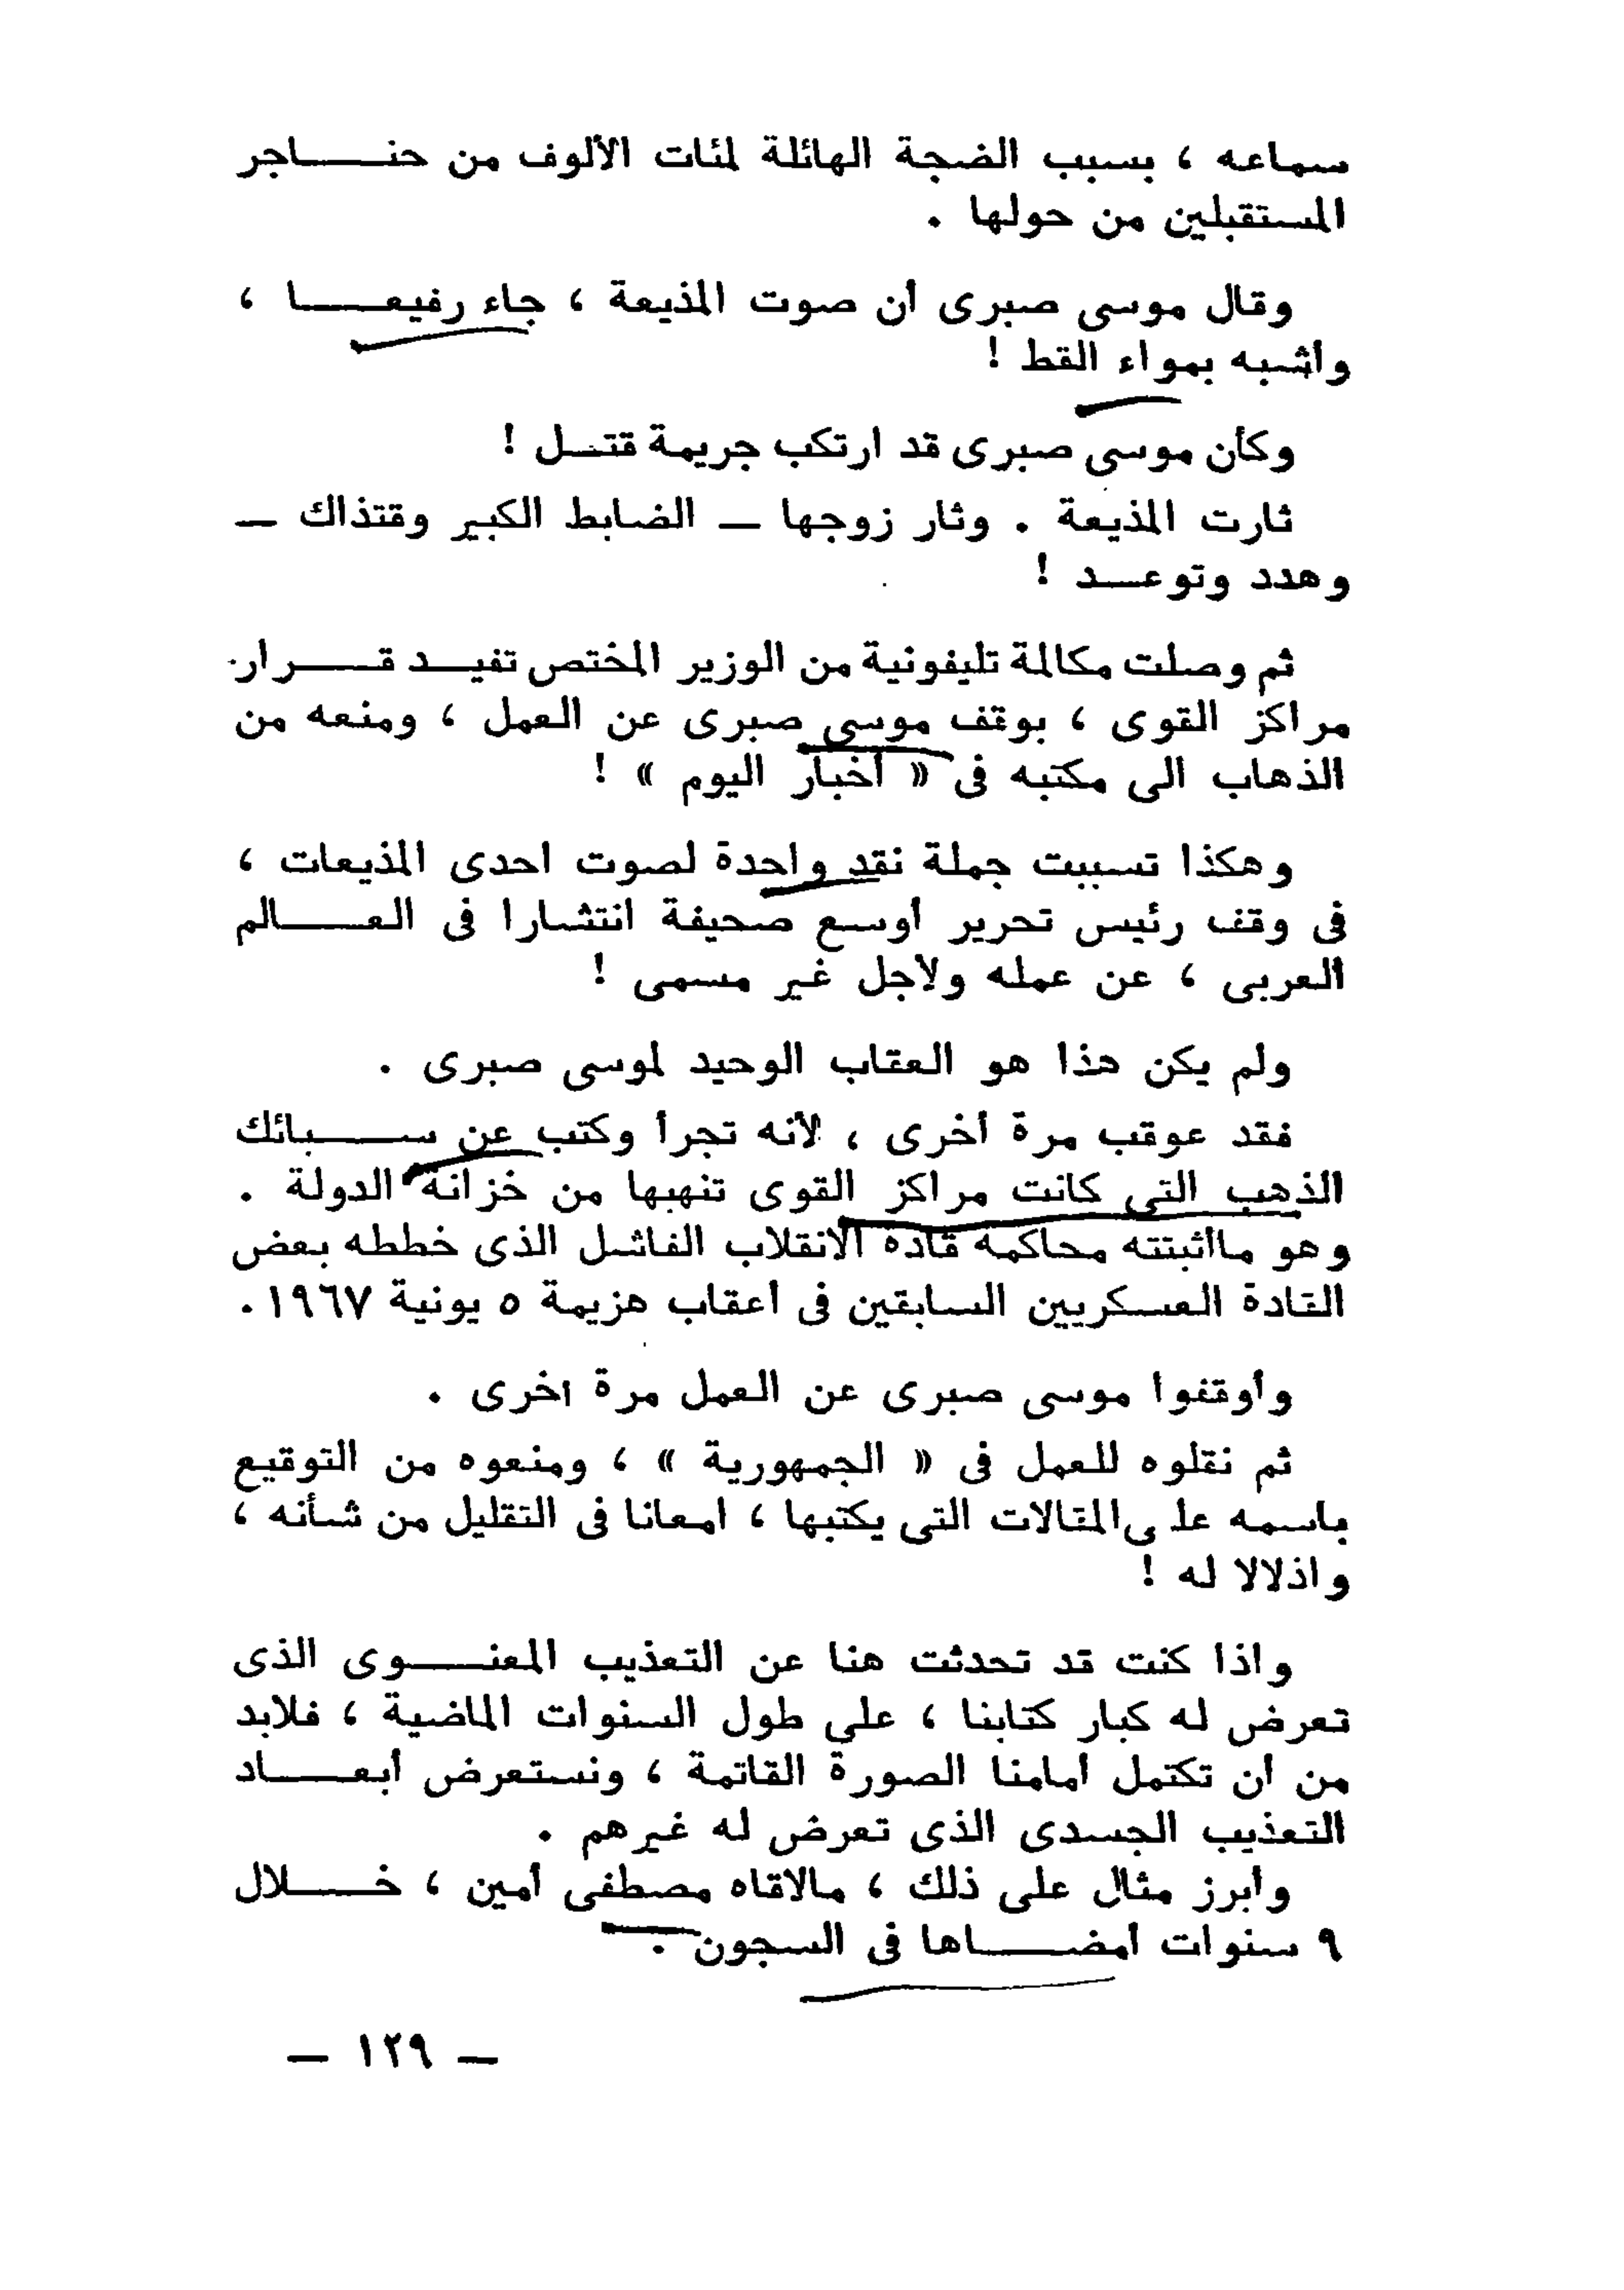 سماعه ، بسبب الضجة الهائلة لمئات الألوف من حنــاجر
المستقبلين من حولها .
وقال موسى صبرى أن صوت المذيعة ، جاء رفيعــا ،
وأشبه بمواء القط !
وكأن موسى صبرى قد ارتكب جريمة قتـل !
ثارت المذيعة . وثار زوجها — الضابط الكبير وقتذاك —
وهدد وتوعــد !
ثم وصلت مكالمة تليفونية من الوزير المختص تفيــد قــرار
مراكز القوى ، بوقف موسى صبرى عن العمل ، ومنعه من
الذهاب الى مكتبه فى « أخبار اليوم » !
وهكذا تسببت جملة نقد واحدة لصوت احدى المذيعات ،
فى وقف رئيس تحرير أوسع صحيفة انتشارا فى العــالم
العربى ، عن عمله ولأجل غير مسمى !
ولم يكن هذا هو العقاب الوحيد لموسى صبرى .
فقد عوقب مرة أخرى ، لأنه تجرأ وكتب عن ســبائك
الذهب التى كانت مراكز القوى تنهبها من خزانة الدولة .
وهو ماأثبتته محاكمة قادة الانقلاب الفاشل الذى خططه بعض
القادة العسكريين السابقين فى أعقاب هزيمة ٥ يونية ١٩٦٧ .
وأوقفوا موسى صبرى عن العمل مرة اخرى .
ثم نقلوه للعمل فى « الجمهورية » ، ومنعوه من التوقيع
باسمه على المقالات التى يكتبها ، امعانا فى التقليل من شأنه ،
واذلالا له !
واذا كنت قد تحدثت هنا عن التعذيب المعنــوى الذى
تعرض له كبار كتابنا ، على طول السنوات الماضية ، فلابد
من أن تكتمل أمامنا الصورة القاتمة ، ونستعرض أبعــاد
التعذيب الجسدى الذى تعرض له غيرهم .
وأبرز مثال على ذلك ، مالاقاه مصطفى أمين ، خــلال
٩ سنوات أمضــاها فى السجون .
— ١٢٩ —